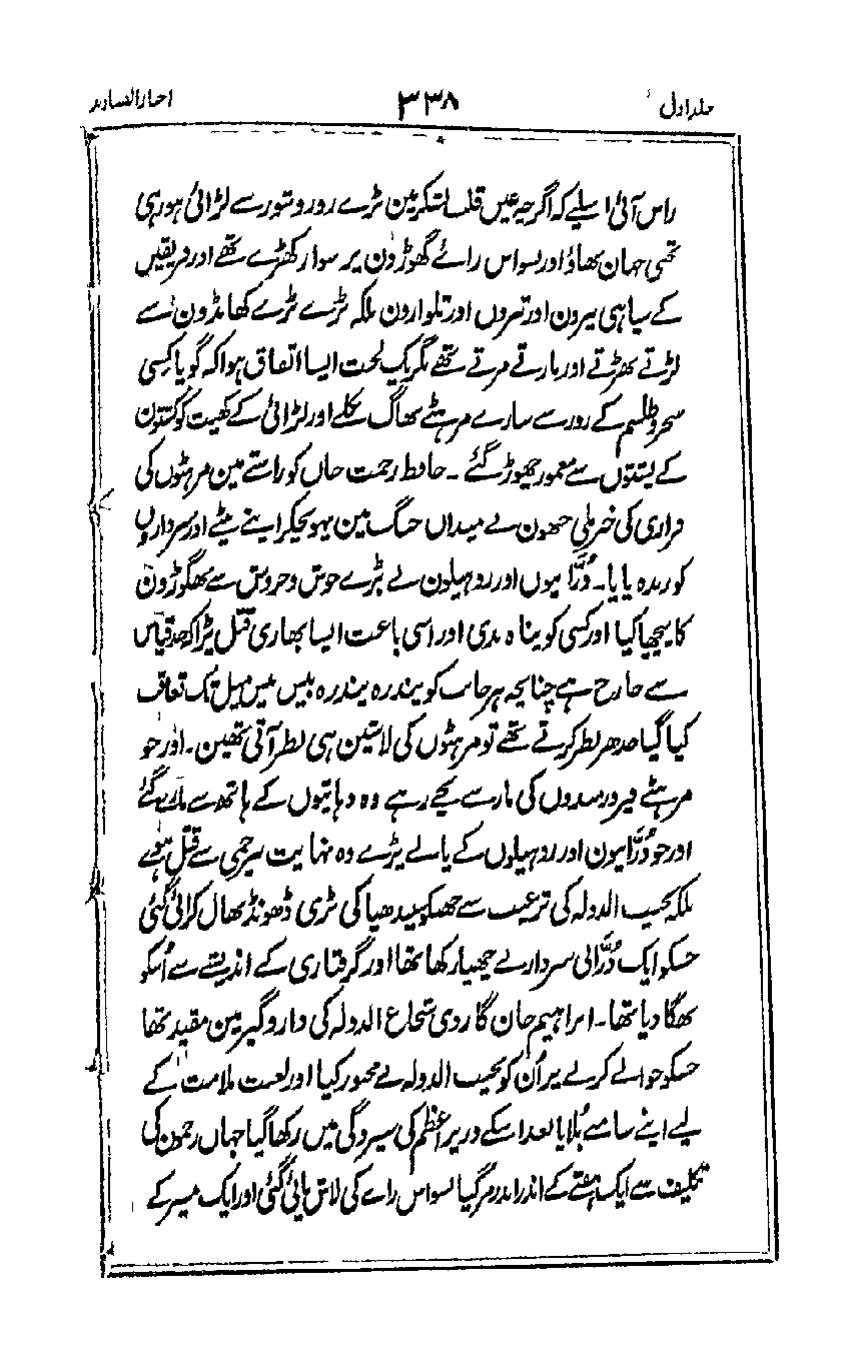 جلد اول ۳۳۸ اخبار الصنادید
راس آئی اسلیے کہ اگرچہ عین قلب لشکر مین بڑے زور و شور سے لڑائی ہو رہی
تھی جہان بھاؤ اور بسواس رائے گھوڑون پر سوار کھڑے تھے اور فریقین
کے سپاہی تیرون اور تبروں اور تلوارون بلکہ بڑے بڑے کھانڈون سے
لڑتے بھڑتے اور مارتے مرتے تھے مگر یک لخت ایسا اتفاق ہوا کہ گویا کسی
سحر و طلسم کے زور سے سارے مرہٹے بھاگ نکلے اور لڑائی کے کھیت کو کشتون
کے پشتوں سے معمور چھوڑ گئے ۔ حافظ رحمت خاں کو راستے مین مرہٹوں کی
فراری کی خبر ملی جنھون نے میداں جنگ مین پہونچکر اپنے بیٹے اور سرداروں
کو زندہ پایا۔ دُرّانیوں اور روہیلون نے بڑے جوش و خروش سے بھگوڑون
کا پیچھا کیا اور کسی کو پناہ ندی اور اسی باعث ایسا بھاری قتل پڑا کہ حد قیاس
سے خارج ہے چنانچہ ہر جانب کو پندرہ پندرہ بیس بیس میل تک تعاقب
کیا گیا جدھر نظر کرتے تھے تو مرہٹوں کی لاشین ہی نظر آتی تھین۔ اور جو
مرہٹے فیروزمندوں کی مار سے بچے رہے وہ دہاتیوں کے ہاتھ سے مارے گئے
اور جو دُرّانیون اور روہیلوں کے پالے پڑے وہ نہایت بیرحمی سے قتل ہوئے
بلکہ نجیب الدولہ کی ترغیب سے جھنکو سیندھیا کی بڑی ڈھونڈ بھال کرائی گئی
جسکو ایک دُرّانی سردار نے چھپا رکھا تھا اور گرفتاری کے اندیشے سے اُسکو
بھگا دیا تھا۔ ابراہیم خان گاردی شجاع الدولہ کی دارو گیر مین مقید تھا
جسکو حوالے کرنے پر اُن کو نجیب الدولہ نے مجبور کیا اور لعنت ملامت کے
لیے اپنے سامنے بُلایا بعد اسکے وزیر اعظم کی سپردگی میں رکھا گیا جہاں زخمون کی
تکلیف سے ایک ہفتے کے اندر اندر مر گیا بسواس راے کی لاش پائی گئی اور ایک میسر کے